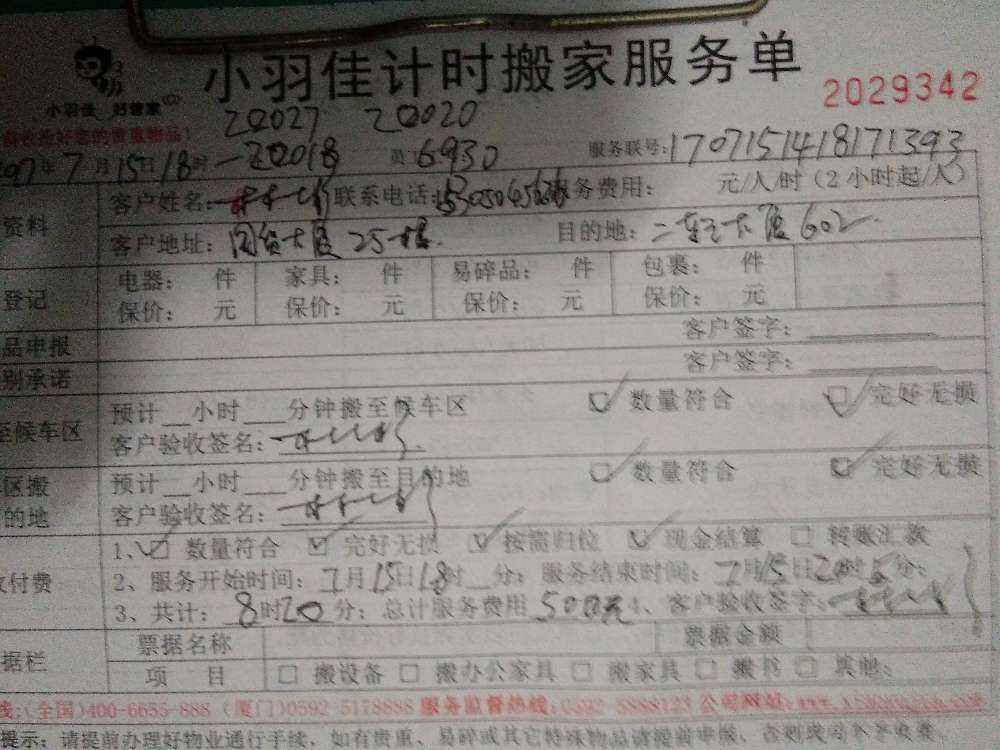 小羽佳计时搬家服务单
小羽佳 好管家
2029342
Z0027 Z0020
年7月15日18时 Z0018 员:6930 服务联号:1707151418171393
资料 客户姓名: 联系电话: 务费用: 元/人/时(2小时起/人)
客户地址: 国贸大厦25楼. 目的地: 大厦602
登记 电器: 件 家具: 件 易碎品: 件 包裹: 件
保价: 元 保价: 元 保价: 元 保价: 元
品申报 客户签字:
别承诺 客户签字:
至候车区 预计__小时___分钟搬至候车区 数量符合 完好无损
客户验收签名:
区搬 预计__小时___分钟搬至目的地 数量符合 完好无损
的地 客户验收签名:
1、 数量符合 完好无损 按需归位 现金结算 转账汇款
付费 2、服务开始时间:7月15日18时 分;服务结束时间:7月15日20时 分;
3、共计:8时20分;总计服务费用500元4、客户验收签字:
据栏 票据名称 票据金额
项 目 搬设备 搬办公家具 搬家具 搬书 其他:
线:(全国)400-6655-888 (厦门)0592-5178888 服务监督热线:0592-5888123 公司网站:
提示: 请提前办理好物业通行手续,如有贵重、易碎或其它特殊物品请提前申报,否则